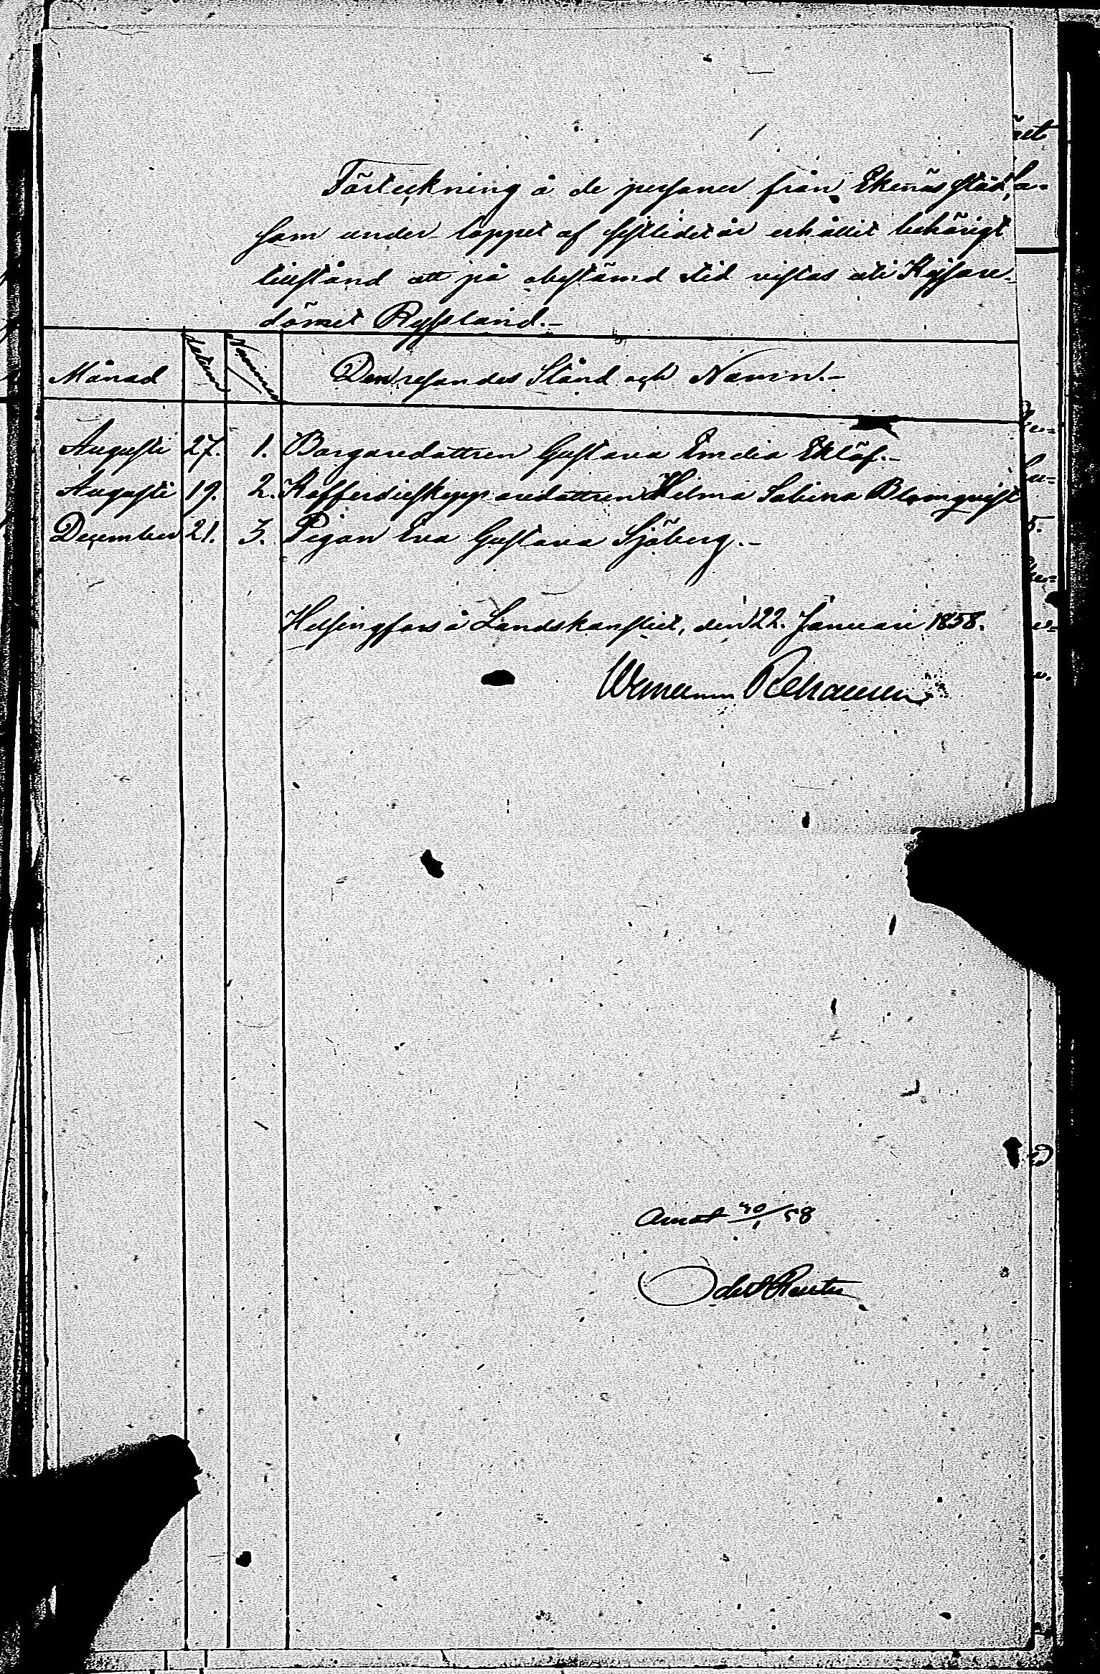 Förteckning å de personer från Ekenäs stad,
som under loppet af sistlidet år erhållit behörigt
tillstånd att på obestämd tid vistas uti Kejsare-
dömet Ryssland.-
Månad datum Nummer Den resandes Stånd och Namn.-
Augusti 27. 1. Borgaredottren Gustava Emelia Eklöf.-
Augusti 19. 2. Kofferdieskepparedottren Hilma Sabina Blomqvist
December 21. 3. Pigan Eva Gustava Sjöberg.-
Helsingfors å Landskansliet, den 22. Januari 1858.
Rehausen
30/1 58
Reuter